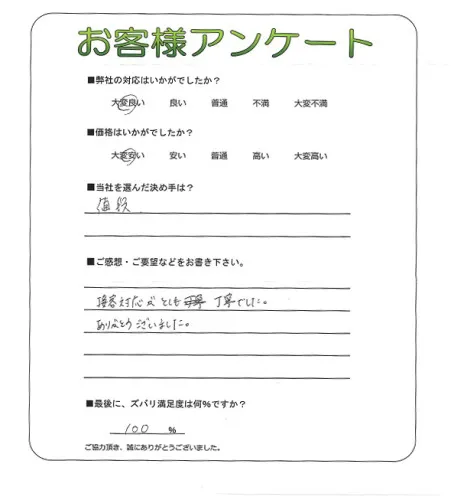 お客様アンケート
■弊社の対応はいかがでしたか？
大変良い 良い 普通 不満 大変不満
■価格はいかがでしたか？
大変安い 安い 普通 高い 大変高い
■当社を選んだ決め手は？
値段
■ご感想・ご要望などをお書き下さい。
接客対応がとても 丁寧でした。
ありがとうございました。
■最後に、ズバリ満足度は何%ですか？
100 %
ご協力頂き、誠にありがとうございました。